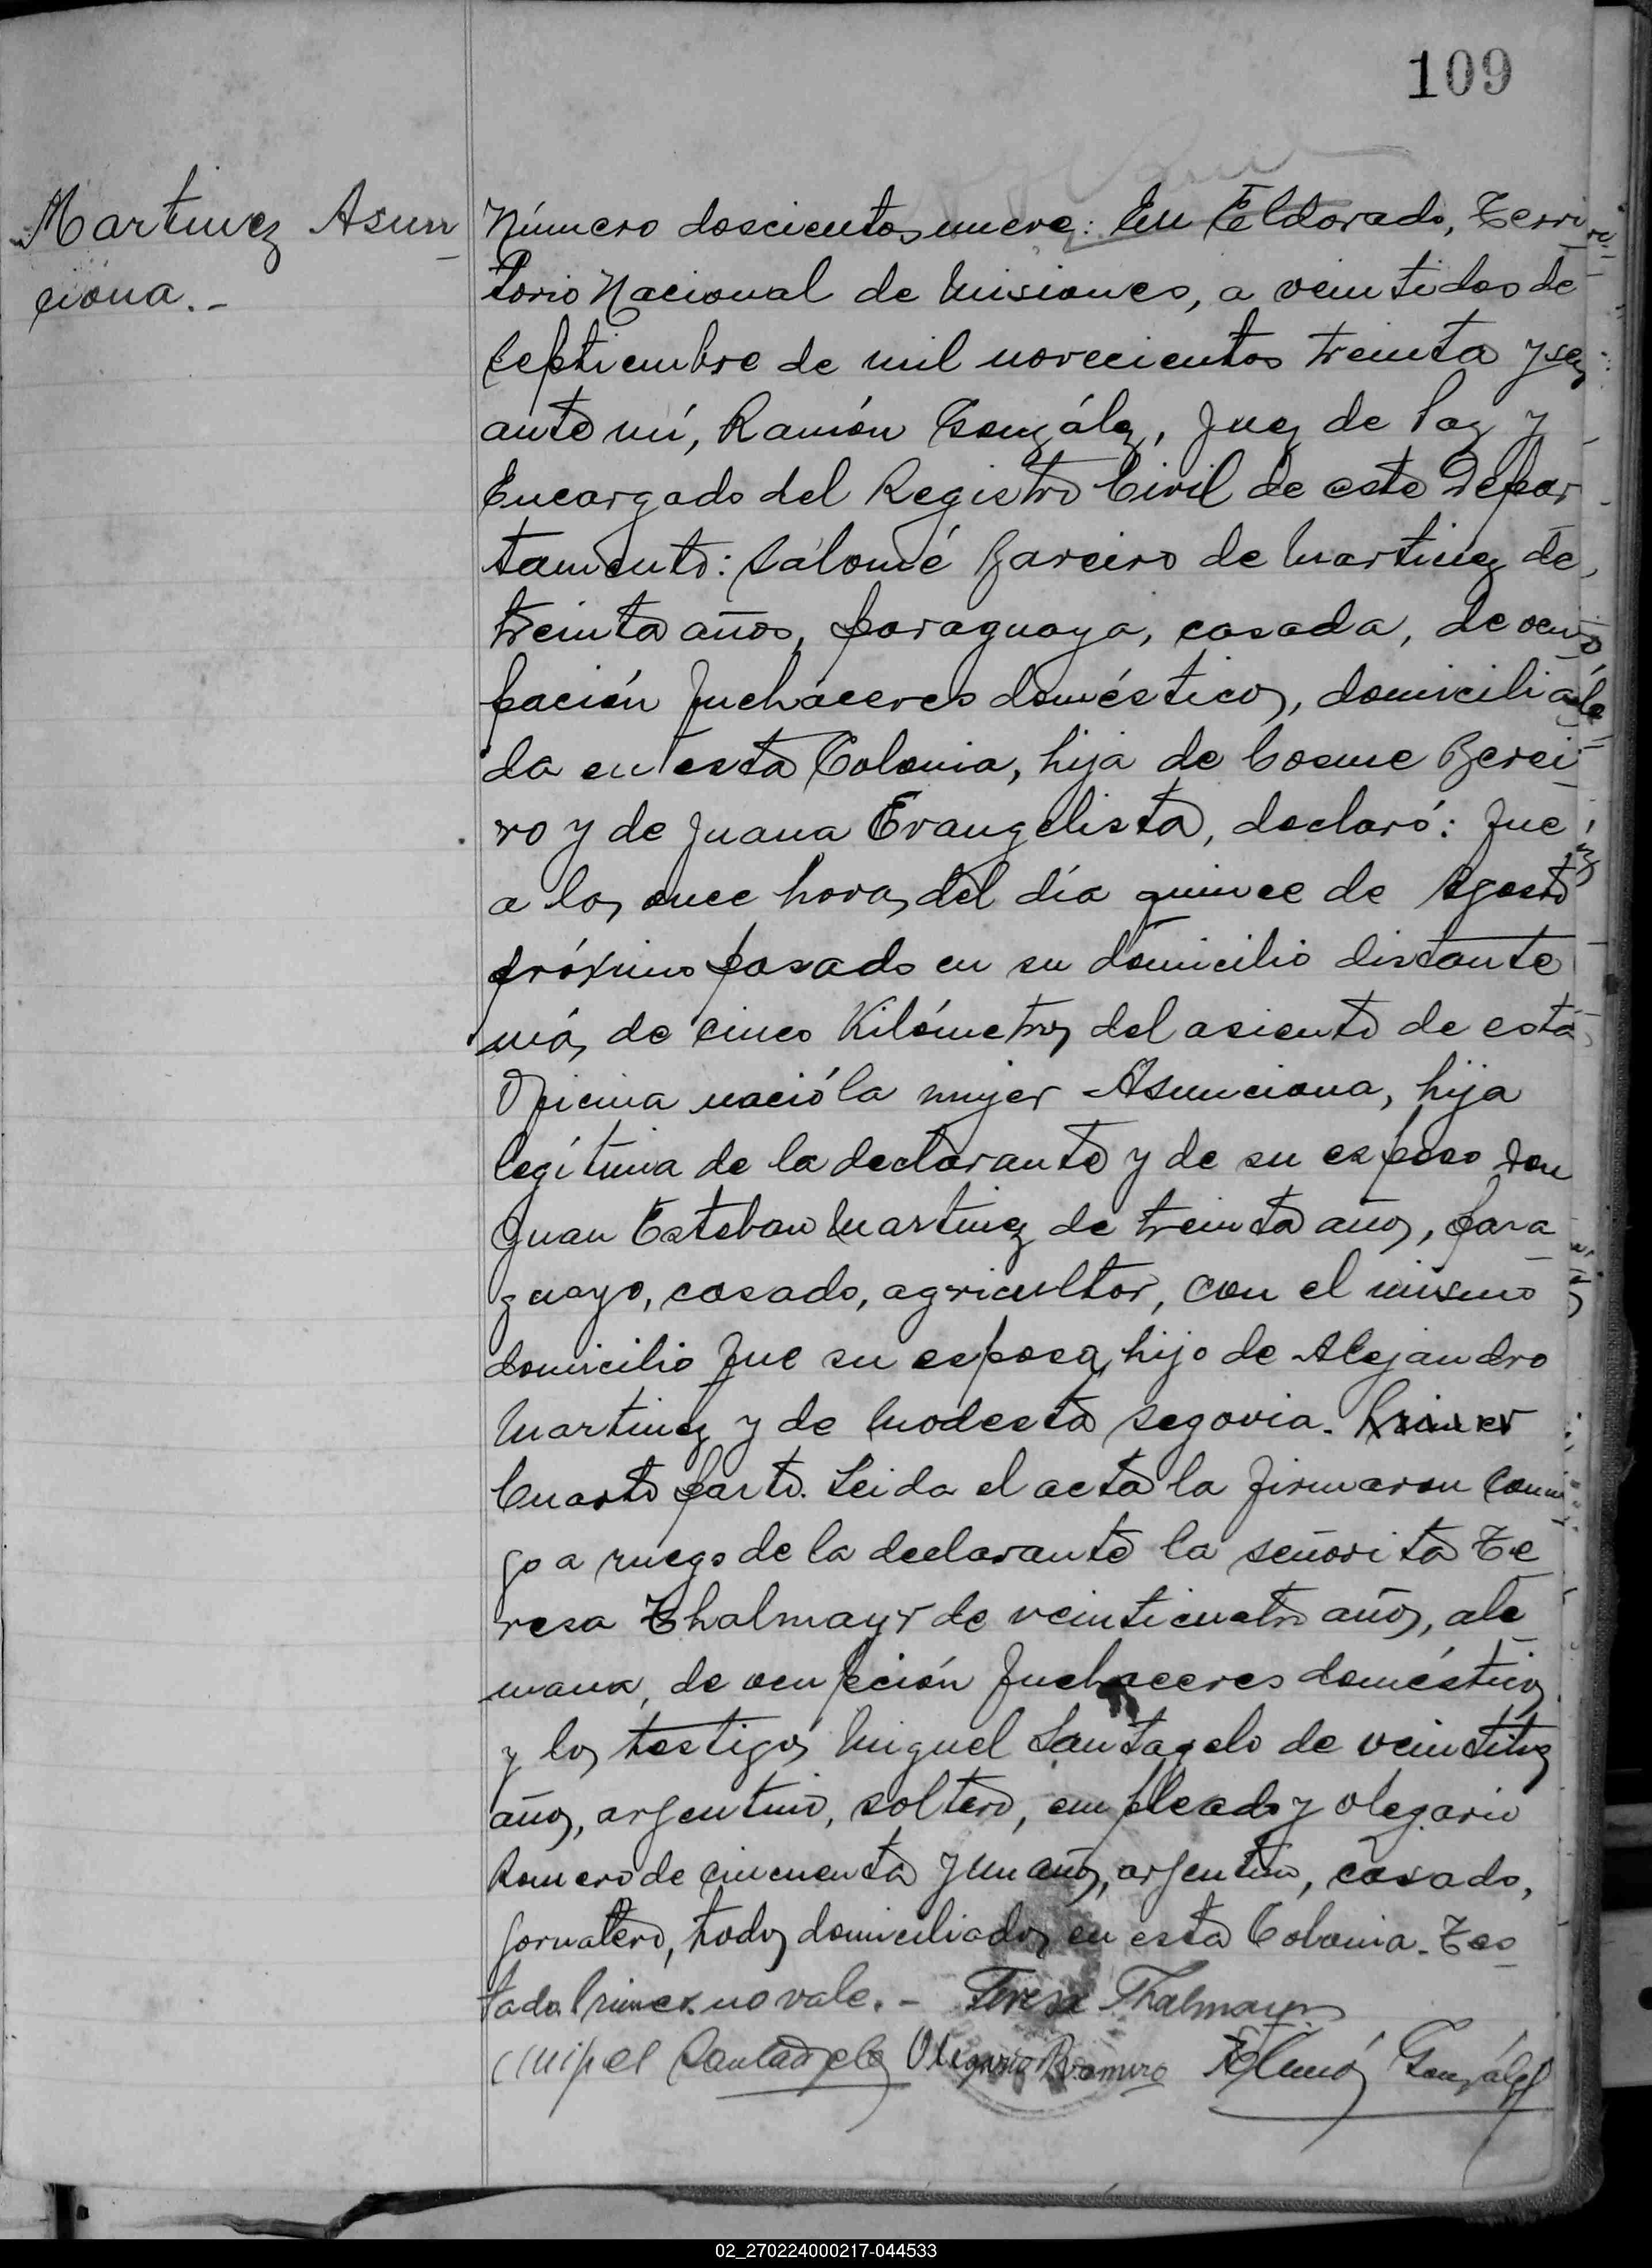 109
Martinez Asun
ciona.-
Número doscientos nueve: En Eldorado, Terri
torio Nacional de Misiones, a veintidos de
septiembre de mil novecientos treinta y seis
ante mí, Ramón González, Juez de Paz y
Encargado del Registro Civil de este Depar
tamento: Salomé Bareiro de Martinez de
treinta años, paraguaya, casada, de ocu
pación quehaceres domésticos, domicilia
da en esta Colonia, hija de Cosme Berei
ro y de Juana Evangelista, declaró: Que
a las once horas del día quince de Agosto
próximo pasado en su domicilio distante
más de cinco Kilómetros del asiento de esta
Oficina nació la mujer Asunciona, hija
legítima de la declarante y de su esposo don
Juan Esteban Martinez de treinta años, para
guayo, casado, agricultor, con el mismo
domicilio que su esposa, hijo de Alejandro
Martinez y de Modesta Segovia. Primer
Cuarto parto. Leida el acta la firmaron conmi
go a ruego de la declarante la señorita Te
resa Thalmayr de veinticuatro años, ale
mana, de ocupción quehaceres domésticos
y los testigos Miguel Santagelo de veintitres
años, argentino, soltero, empleado y Olegario
Romero de cincuenta y un años, argentino, casado,
jornalero, todos domiciliados en esta Colonia. Tes
tado. Primer. no vale. - Teresa Thalmayr
Miguel Santangelo Olegario Romero Ramón González
02_270224000217-044533